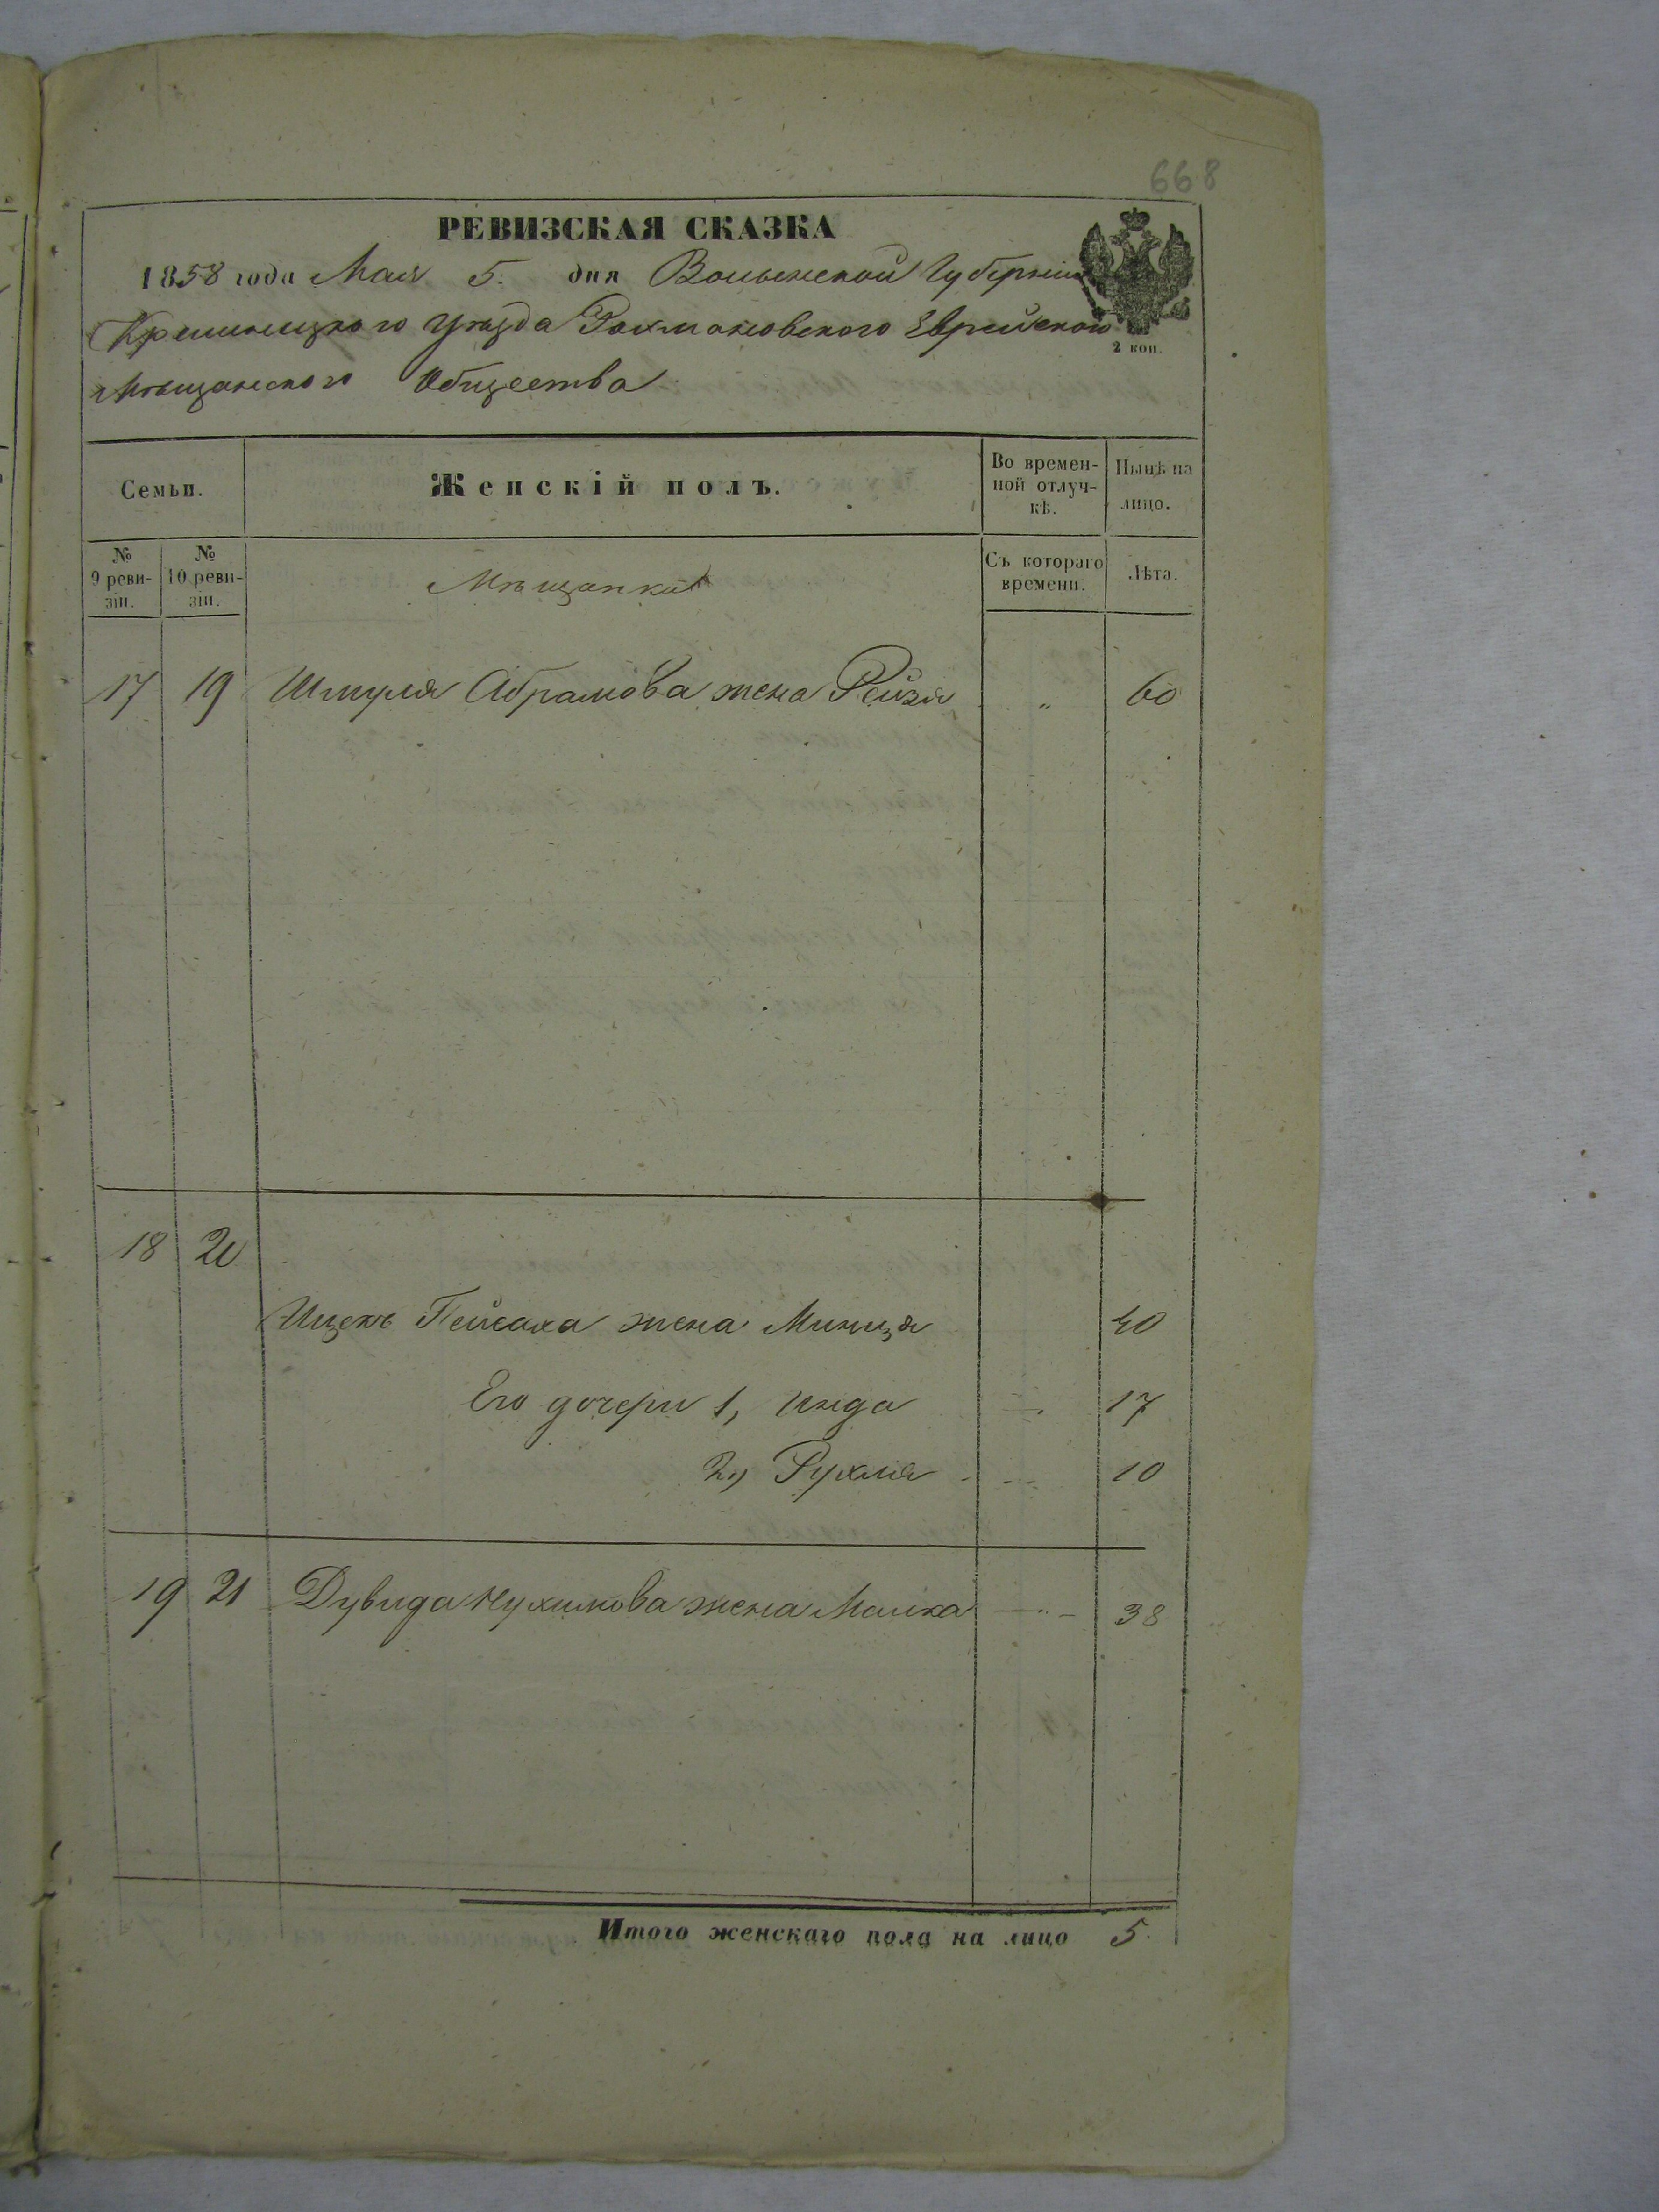 668
РЕВИЗСКАЯ СКАЗКА
1858 года Мая 5. дня Волынской Губерніи
Кременецкого уезда Рахмановского Еврейского
Мѣщанского Общества
2 коп.
Семьи.
Женскій полъ.
Во времен-
ной отлуч-
кѣ.
Нынѣ на
лицо.
№
9 реви-
зіи.
№
10 реви-
зіи.
Мѣщанки
Съ котораго
времени.
Лѣта.
17 19 Шмуля Абрамова жена Рейзя " 60
18 20
Ицекъ Пейсаха жена Минця 40
Его дочери 1, Инда 17
2, Рухля 10
19 21 Дувида Нухимова жена Малка 38
Итого женскаго пола на лицо 5.